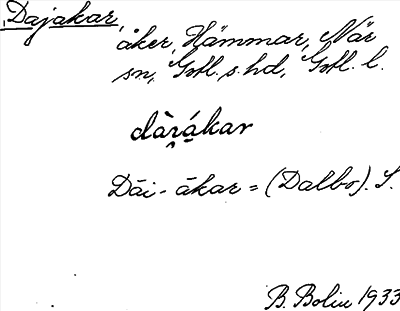 Dajakar,
åker, Hammar, När
sn, Gotl. s. hd, Gotl. l.
dàrákar
Dāi-ākar = (Dalbo). S.
B. Bolin 1933